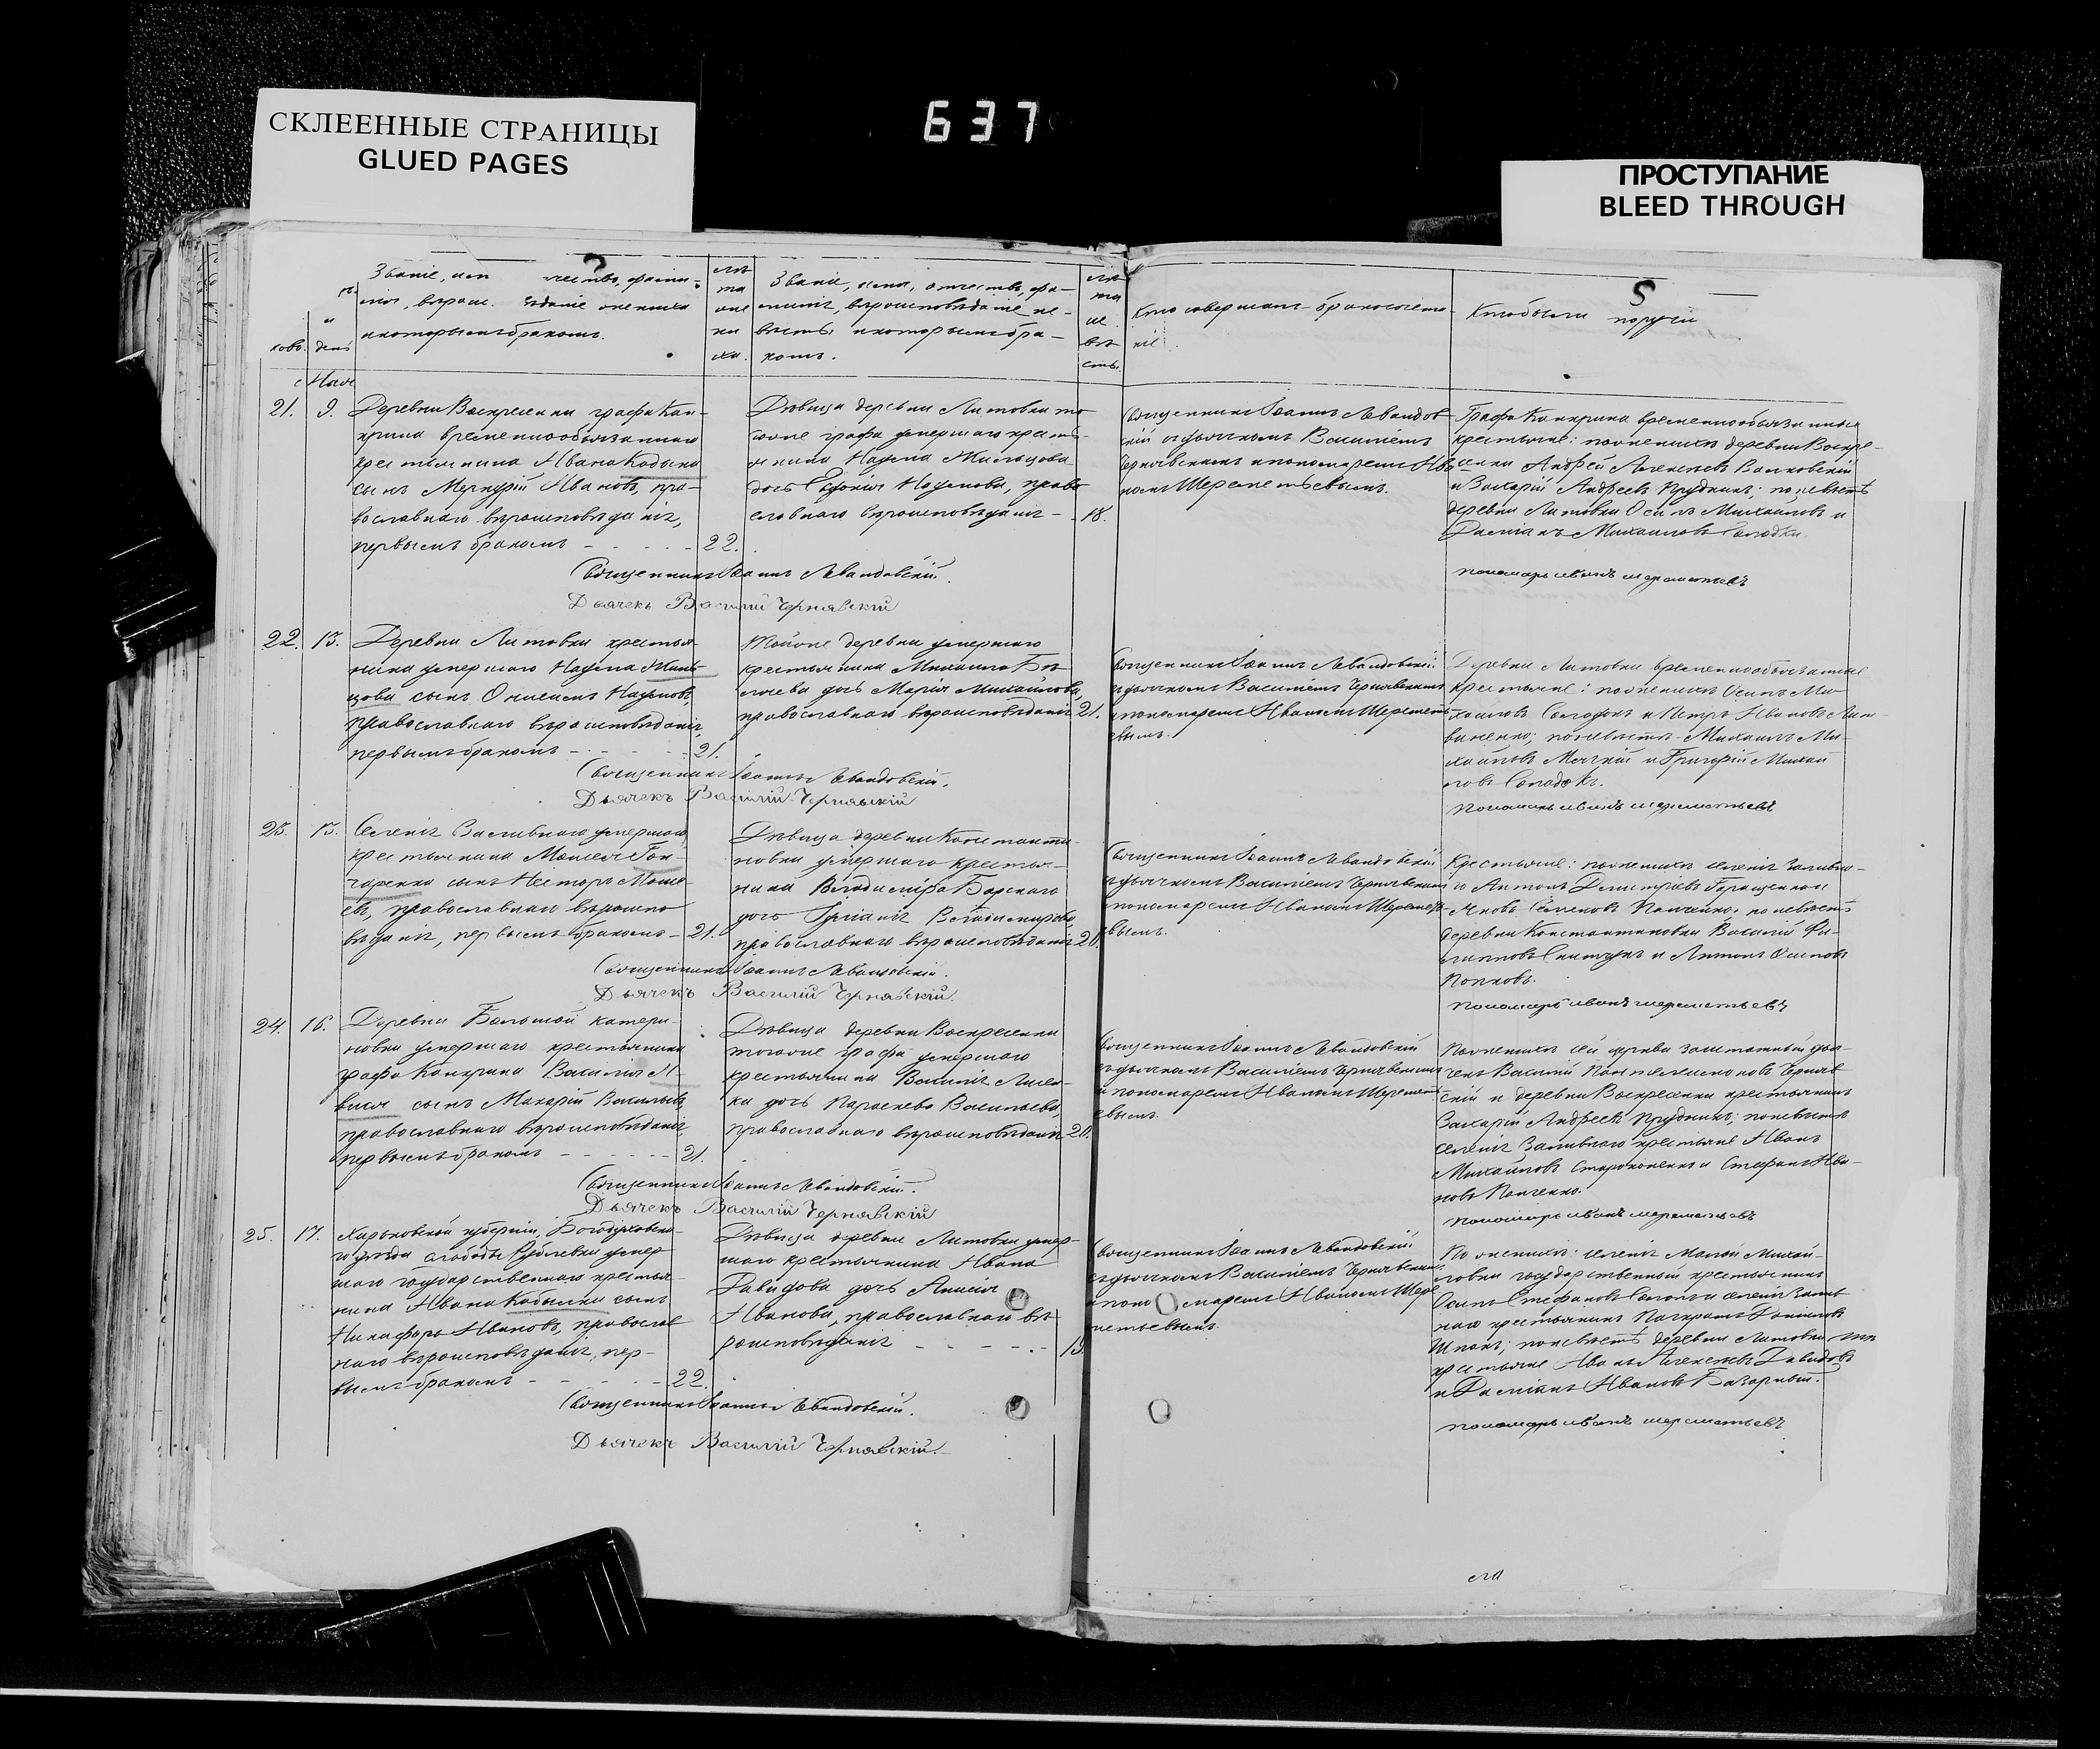 СКЛЕЕННЫЕ СТРАНИЦЫ
GLUED PAGES
637
ПРОСТУПАНИЕ
BLEED THROUGH
Званіе,
которымъ бракомъ.
Званіе, имя, отчество, фа-
миліе, вѣроисповѣданіе не-
вѣсты и которымъ бра-
комъ.
лѣ
та
не
вѣ
сты.
Кто совершалъ бракосочета-
ніе.
Кто были поручи
21.
9.
Деревни Воскресенки графа Кан-
крина временнообязаннаго
крестьянина Ивана Кобзы
сынъ Меркурій Ивановъ, пра-
вославнаго вѣроисповѣданія,
первымъ бракомъ
22.
Дѣвица деревни Литовки то
гоже графа умершаго кресть-
янина Наума
дочь Наумова, право
славнаго вѣроисповѣданія
18.
Священникъ Іоаннъ Левандов
скій съ дьячкомъ Василіемъ
Чернявскимъ и пономаремъ Ива
номъ Шереметьевымъ.
Графа Канкрина временнообязанные
крестьяне: по женихѣ деревни Воскре-
сенки Андрей Алексѣевъ
и Захарій Андреевъ Прудникъ; по невѣстѣ
деревни Литовки Осипъ Михаиловъ и
Даміанъ Михаиловъ
Священникъ Іоаннъ Левандовскій.
Дьячекъ Василій Чернявскій
пономарь иванъ шереметьевъ
22.
13.
Деревни Литовки крестья-
нина умершаго Наума
сынъ Онисимъ Наумовъ,
православнаго вѣроисповѣданія,
первымъ бракомъ
21.
Тойже деревни умершаго
крестьянина Михаила
дочь Марія Михайлова,
православнаго вѣроисповѣданія
21.
Священникъ Іоаннъ Левандовскій
съ дьячкомъ Василіемъ Чернявскимъ
и пономаремъ Иваномъ Шеремет-
евымъ.
Деревни Литовки временнообязанные
крестьяне: по женихѣ Осипъ Ми-
хаиловъ и Петръ Ивановъ Лит-
виненко; по невѣстѣ Михаилъ Ми-
хаиловъ и Григорій Михаи
ловъ
Священникъ Іоаннъ Левандовскій.
Дьячекъ Василій Чернявскій
пономарь иванъ шереметьевъ
23.
15.
Селенія Заливнаго умершаго
крестьянина Моисея Гон-
чаренка сынъ Несторъ Моисе-
евъ, православнаго вѣроиспо
вѣданія, первымъ бракомъ
21.
Дѣвица деревни Константи-
новки умершаго крестья-
нина Владиміра
дочь Владимирова,
православнаго вѣроисповѣданія
20.
Священникъ Іоаннъ Левандовскій
съ дьячкомъ Василіемъ Чернявскимъ
и пономаремъ Иваномъ Шеремет-
евымъ.
Крестьяне: по женихѣ селенія Заливна-
го Антонъ Димитріевъ Геращенко и
Яковъ Панченко; по невѣстѣ
деревни Константиновки Василій Фи-
липповъ и Антонъ Осиповъ
Поповъ.
Священникъ Іоаннъ Левандовскій.
Дьячекъ Василій Чернявскій.
пономарь иванъ шереметьевъ
24.
16.
Деревни Большой Катери-
новки умершаго крестьянина
графа Канкрина Василія
сынъ Макарій Васильевъ,
православнаго вѣроисповѣданія,
первымъ бракомъ
21.
Дѣвица деревни Воскресенки
тогоже графа умершаго
крестьянина Василія Лисен-
ка дочь Параскева Васильева,
православнаго вѣроисповѣданія
20.
Священникъ Іоаннъ Левандовскій
съ дьячкомъ Василіемъ Чернявскимъ
и пономаремъ Иваномъ Шеремет-
евымъ.
По женихѣ сей церкви заштатный дья-
чекъ Василій Пантелеимоновъ Черняв-
скій и деревни Воскресенки крестьянинъ
Захарій Андреевъ Прудникъ; по невѣстѣ
селенія Заливнаго крестьяне Иванъ
Михайловъ и Стефанъ Ива-
новъ Панченко.
Священникъ Іоаннъ Левандовскій.
Дьячекъ Василій Чернявскій
пономарь иванъ шереметьевъ
25.
17.
Харьковской губерніи, Богодуховска-
го уѣзда слободы умер
шаго государственнаго крестья-
нина Ивана Кобылки сынъ
Никифоръ Ивановъ, православ
наго вѣроисповѣданія, пер-
вымъ бракомъ
22.
Дѣвица деревни Литовки умер-
шаго крестьянина Ивана
Давидова дочь Анисія
Иванова, православнаго вѣ
роисповѣданія
19.
Священникъ Іоаннъ Левандовскій
съ дьячкомъ Василіемъ Чернявскимъ
и пономаремъ Иваномъ Шере
метьевымъ.
По женихѣ: селенія Малой Михай-
ловки государственный крестьянинъ
Осипъ Стефановъ и селенія Залив
наго крестьянинъ
по невѣстѣ деревни Литовки
крестьяне Иванъ Алексѣевъ Давидовъ
и Даміанъ Ивановъ Базарный.
Священникъ Іоаннъ Левандовскій.
Дьячекъ Василій Чернявскій.
пономарь иванъ шереметьевъ